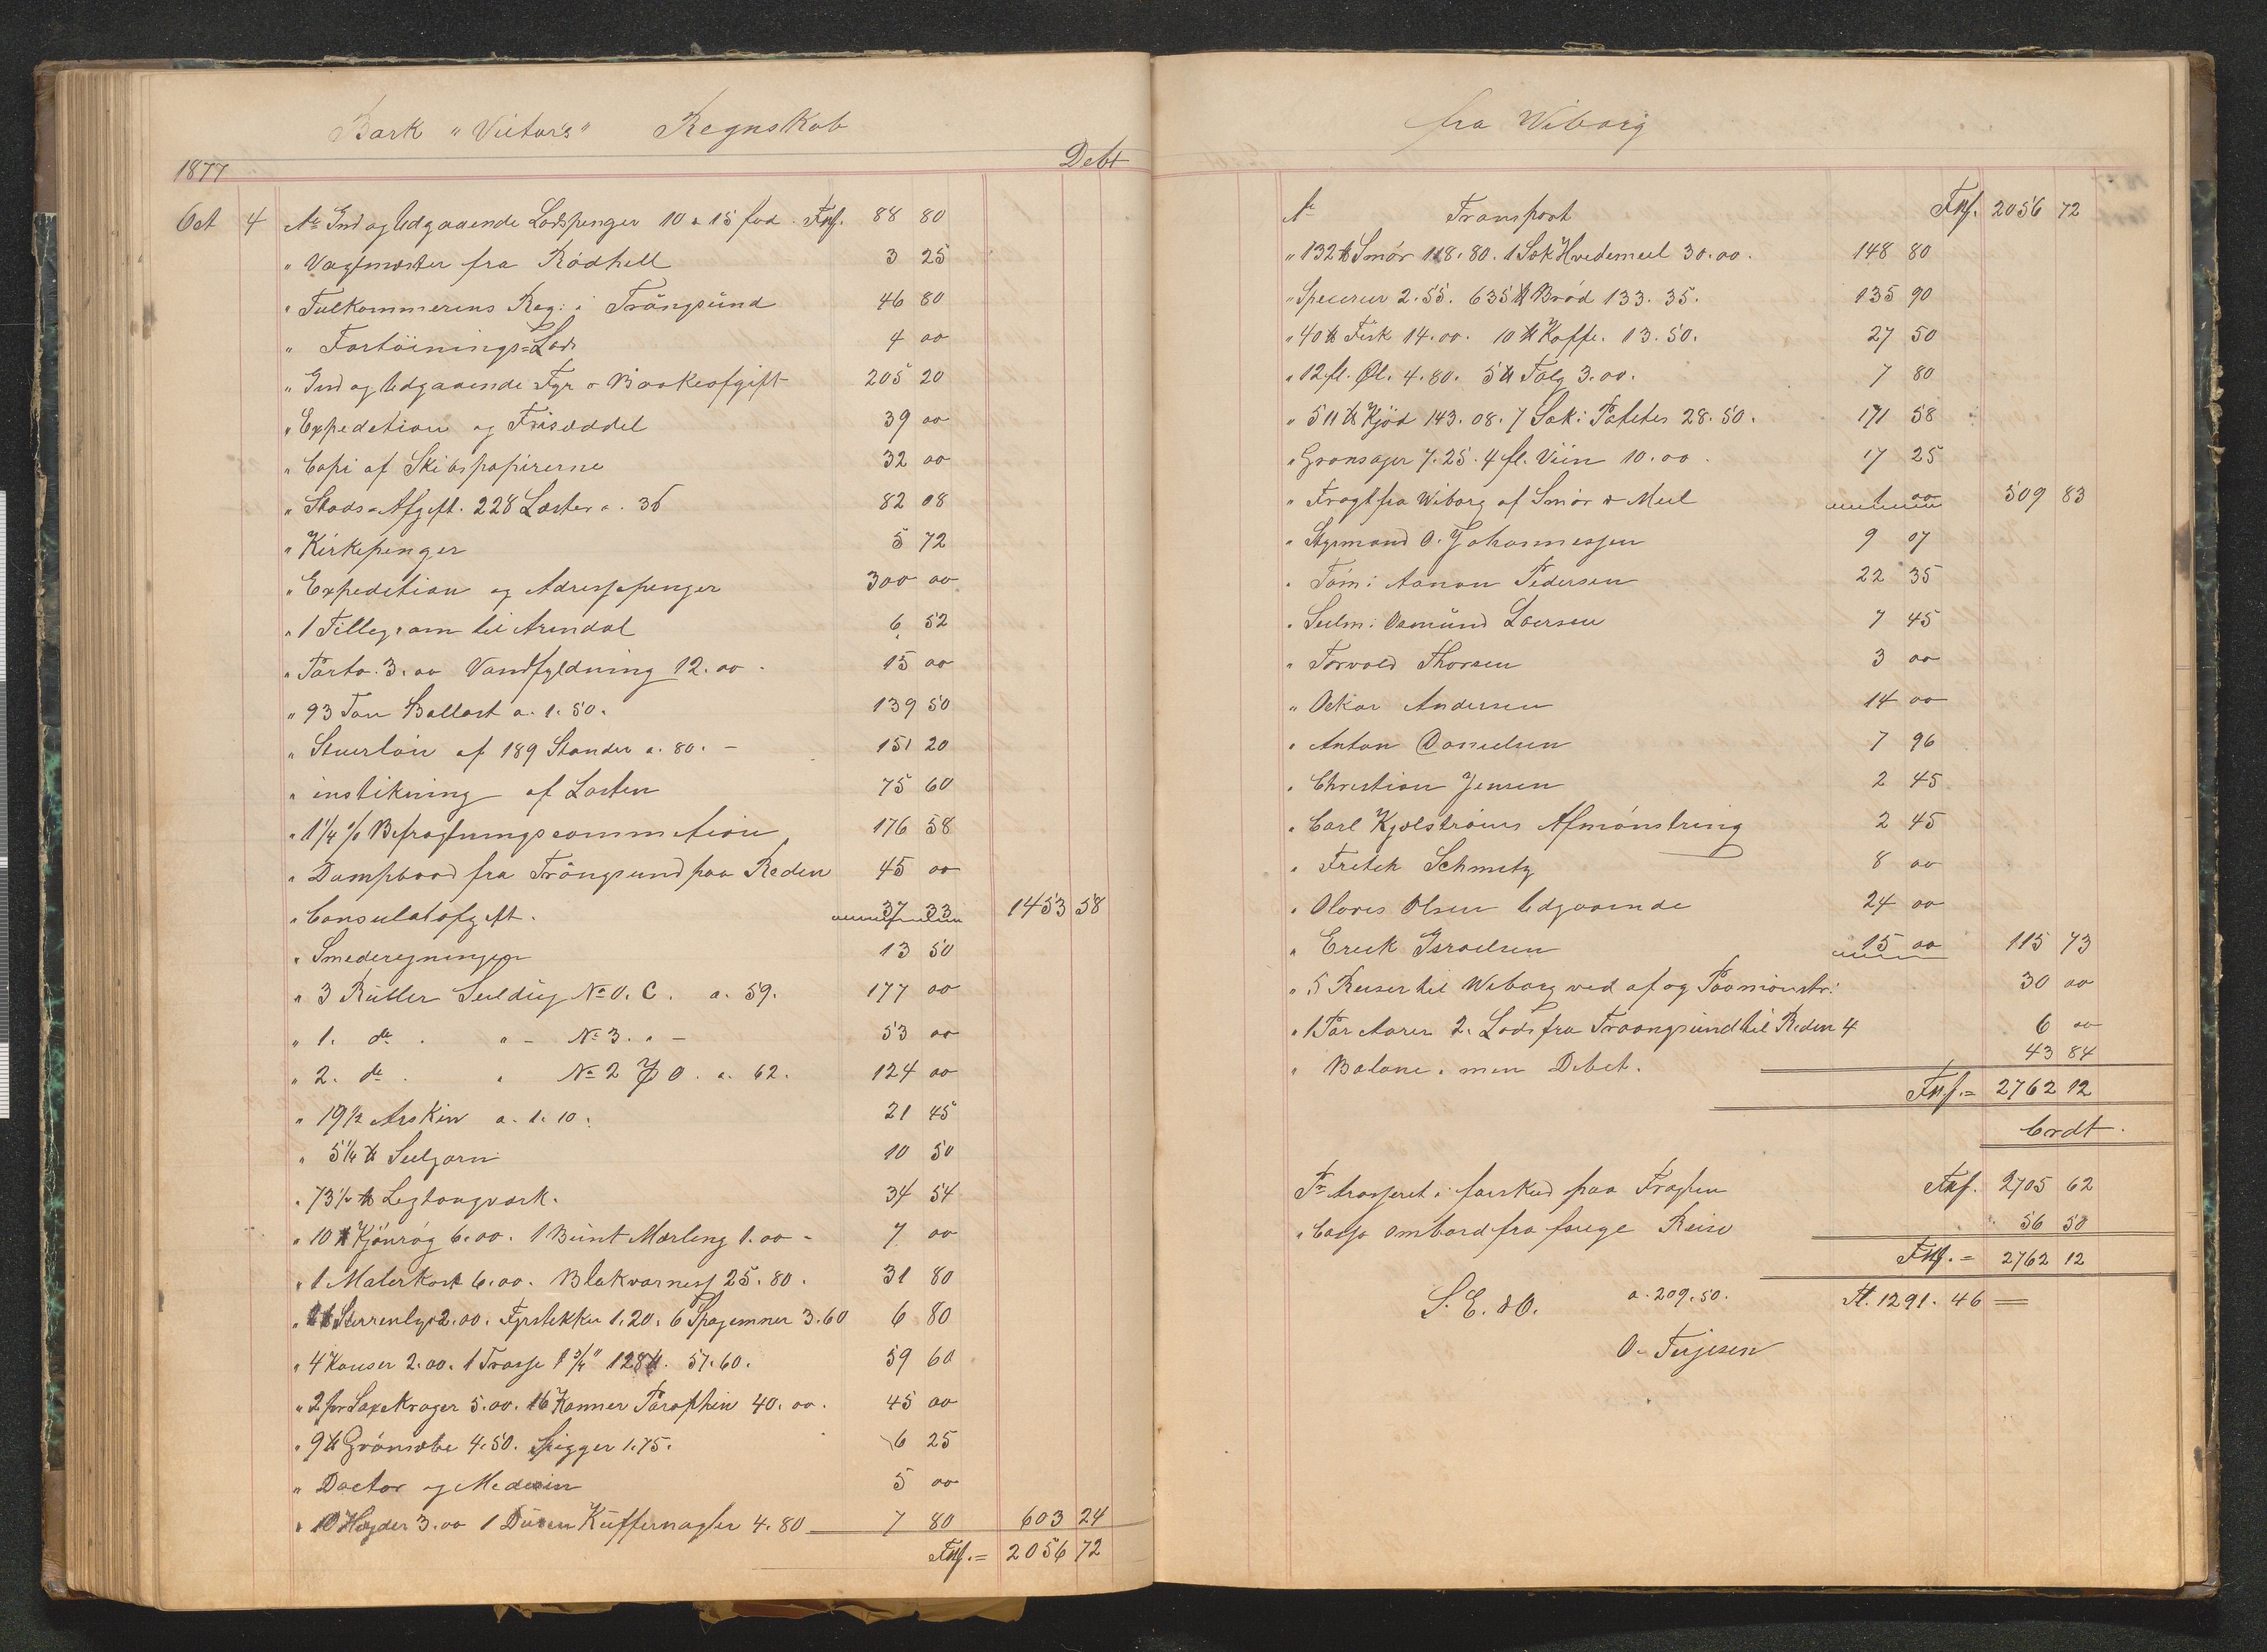 Bark "Victor's" Regnskab
1877 Debt
Oct 4 An Ind og Udgaaende Lodspenger 10 a 15 fod. Fmf. 88 80
" Vagtmester fra Rödhell 3 25
" Tulkammerens Reg: i Trångsund 46 80
" Fortöinings=Lods 4 00
" Ind og Udgaaende Fyr & Baakeafgift 205 20
" Expedetion og Friseddel 39 00
" Copi af Skibspapirerne 32 00
" Stads=Afgift. 228 Læster a. 36 82 08
" Kirkepenger 5 72
" Expedetion og Adressepenger 300 00
" 1 Tillegram til Arendal 6 52
" Porto. 3.00 Vandfyldning 12.00 15 00
" 93 Ton Ballast a. 1.50. 139 50
" Stuerlön af 189 Stander a. 80. - 151 20
" instikning af Lasten 75 60
" 1 1/4 % Befragtningscommetion 176 58
" Dampbaad fra Trångsund paa Reden 45 00
" Consulatafgift. 37 33 1453 58
" Smederegninger 13 50
" 3 Ruller Seildug No 0. C. a. 59. 177 00
" 1. do. " - No 3. " - 53 00
" 2. do. " No 2 & 0. a. 62. 124 00
" 19 1/2 Arskin a. 1.10. 21 45
" 5 1/4 ℔ Seilgarn 10 50
" 73 1/2 ℔ Legtougværk. 34 54
" 10 ℔ Kjönrög 6.00. 1 Bunt Merling 1.00 - 7 00
" 1 Malerkost 6.00. Blakvarness 25.80. 31 80
" Sterrenlys 2.00. Fyrstekker 1.20. 6 Spogemner 3.60 6 80
" 4 Kouser 2.00. 1 Trosse 1 3/4" 128 ℔. 57.60. 59 60
" 2 par Saxekrager 5.00. 16 Kanner Paraphin 40.00. 45 00
" 9 ℔ Grönsæbe 4.50. Spigger 1.75. 6 25
" Doctor og Medesin 5 00
" 10 Hagder 3.00 1 Dusen Kuffernagler 4.80 7 80 603 24
Fmf. = 2056 72
fra Wiborg
An Transport Fmf. 2056 72
" 132 ℔ Smör 118.80. 1 Sæk Hvedemeel 30.00. 148 80
" Specerier 2.55. 635 ℔ Bröd 133.35. 135 90
" 40 ℔ Fisk 14.00. 10 ℔ Kaffe. 13.50. 27 50
" 12 fl. Øl. 4.80. 5 ℔ Talg 3.00. 7 80
" 511 ℔ Kjöd 143.08. 7 Sæk: Pottetes 28.50. 171 58
" Gronsager 7.25. 4 fl. Viin 10.00. 17 25
" Fragt fra Wiborg af Smör & Meel 1 00 509 83
" Styrmand O. Johannessen 9 07
" Töm: Aanon Pedersen 22 35
" Seilm: Osmund Loersen 7 45
" Torvald Thorsen 3 00
" Oskar Andersen 14 00
" Anton Danielsen 7 96
" Christian Jensen 2 45
" Carl Kjelströms Afmönstring 2 45
" Fretch Schmitz 8 00
" Olaves Olsen Udgaaende 24 00
" Ereck Israelsen 15 00 115 73
" 5 Reiser til Wiborg ved af og Paamönstr: 30 00
" 1 Par Aarer 2. Lods fra Traangsund til Reden 4 6 00
" Balane. men Debet. 43 84
Fmf. = 2762 12
Credt.
Pr trasseret i forskud paa Fragten Fmf. 2705 62
" Cassa ombord fra forige Reise 56 50
Fmf. = 2762 12
S. E. & O. a. 209.50. fl. 1291.46 =
O. Terjesen